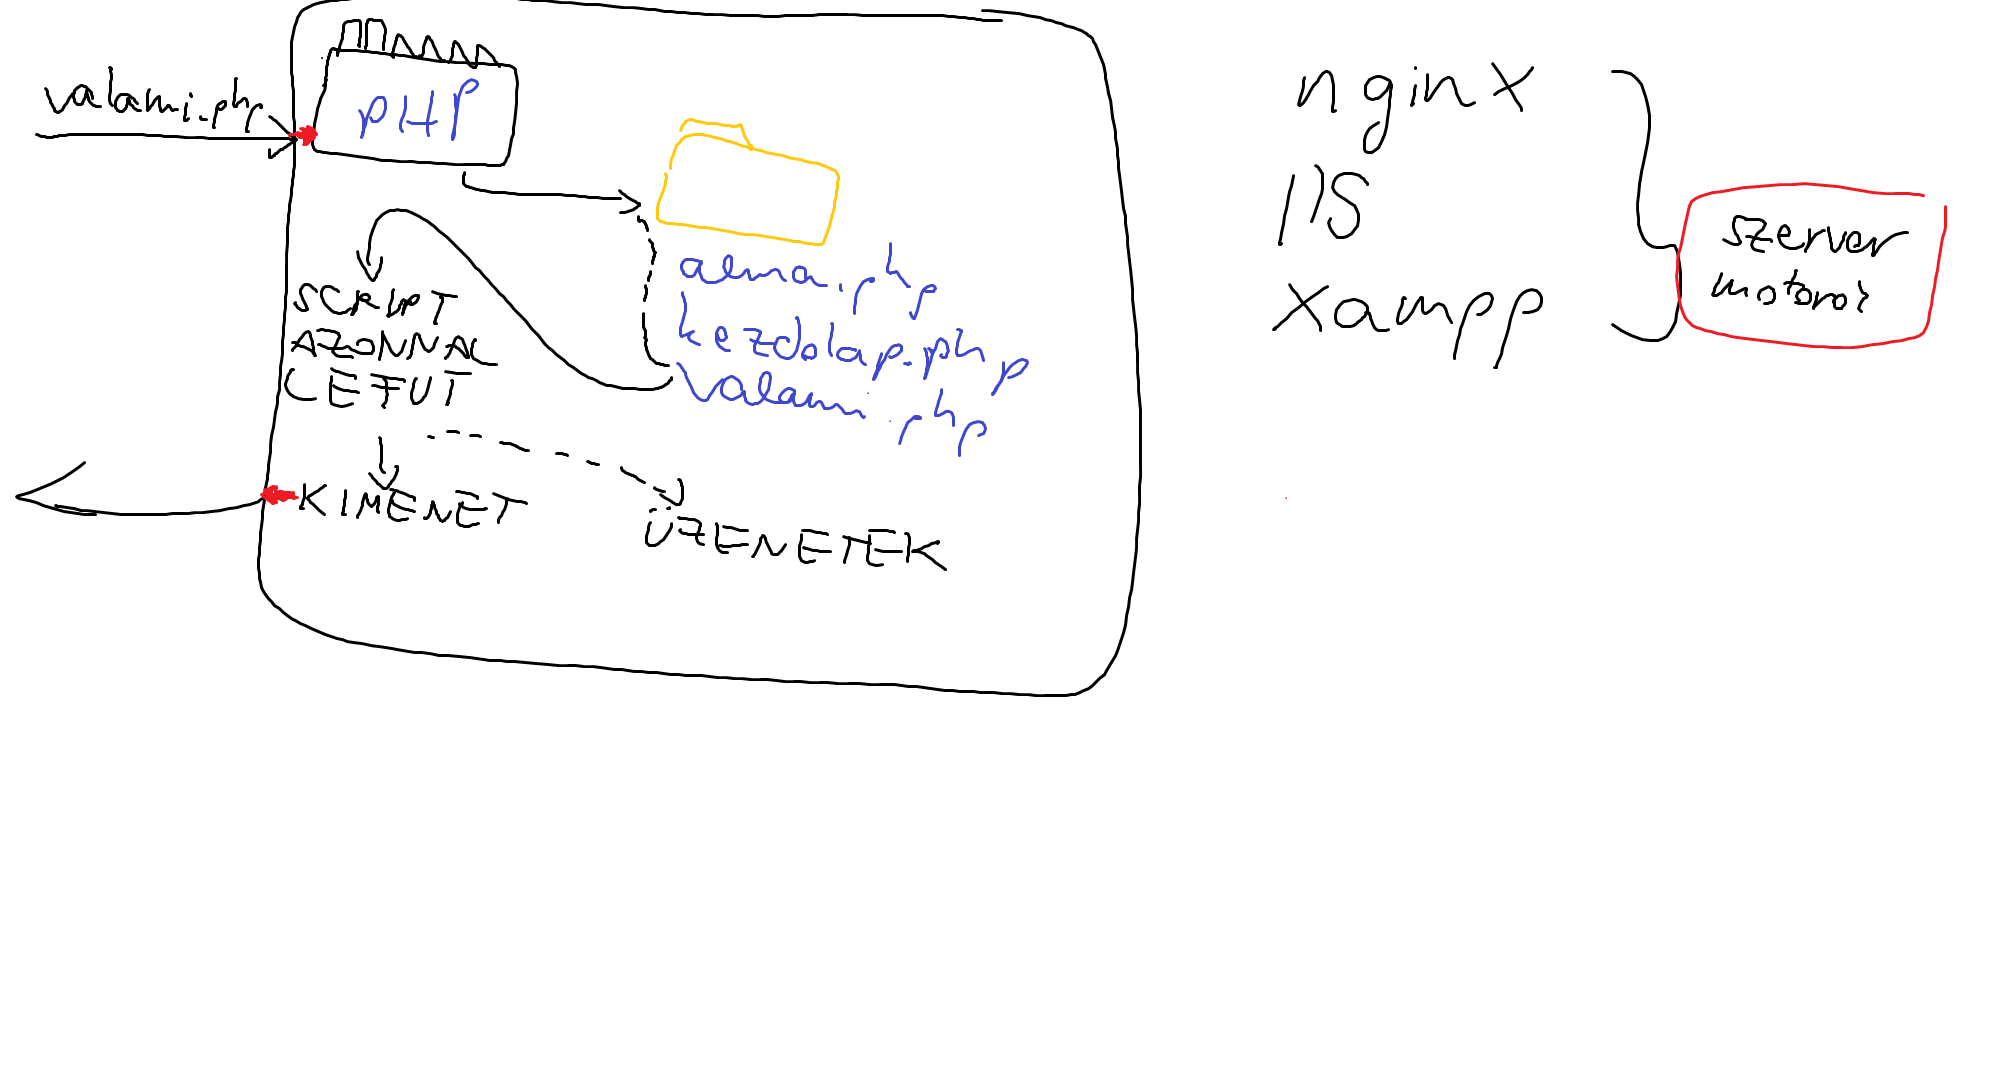 valami.php
PHP
alma.php
kezdolap.php
valami.php
SCRIPT
AZONNAL
LEFUT
KIMENET
ÜZENETEK
nginx
IIS
xampp
szerver
motorok